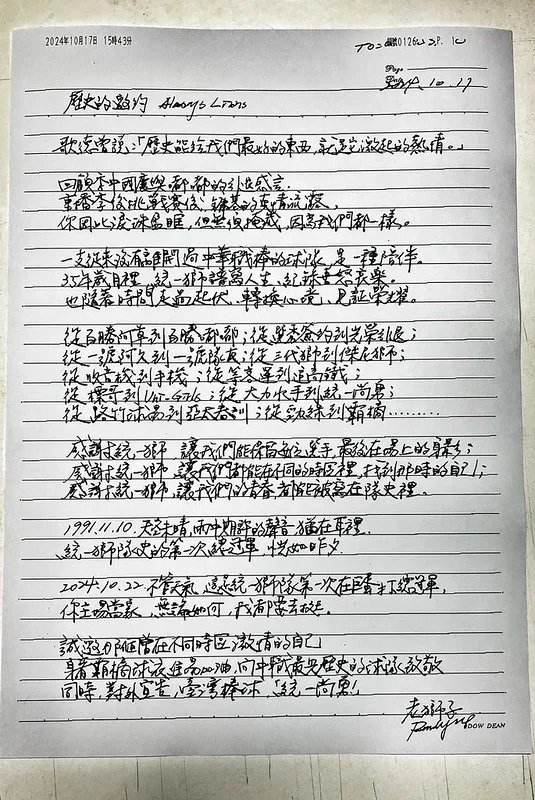 2024年10月17日 15時43分
TO:
0126
P.
Page
2024.10.17
歷史的邀約 Always Lions
歌德曾說:「歷史能給我們最好的東西,就是它激起的熱情。」
回顧本中國慶與嘟嘟的引退感言
你因此淚珠盈眶,但無須掩藏,因為我們都一樣。
一支從來沒有離開過中華職棒的球隊,是一種陪伴。
35年歲月裡,統一獅譜寫人生,紀錄喜怒哀樂。
也隨著時間走過起伏,轉換心境,見証榮耀。
從百勝阿草到百勝嘟嘟;從選秀簽約到光榮引退;
從一號阿久到一號隊長;從三代獅到傑尼獅;
從收音機到手機;從等客運到追高鐵;
從 標哥到Uni-Girls;從大力水手到統一尚勇;
從 路竹球場到亞太春訓;從勁綠到霸橘………
感謝統一獅 讓我們能保留每位選手,最後在場上的身影;
感謝統一獅 讓我們都能在不同的時區裡,找到那時的自己;
感謝統一獅 讓我們的青春都能被寫在隊史裡。
1991.11.10. 天未晴,雨中期許的聲音猶在耳裡,
統一獅隊史的第一次總冠軍,恍如昨夕
2024.10.22. 不管天氣,這是統一獅隊第一次在巨蛋打總冠軍,
你主場當家,無論如何,我都要去挺。
誠邀那個曾在不同時區激情的自己
身著霸橘球衣進場加油,向中職最長歷史的球隊致敬
同時,對外宣告,臺灣棒球,統一尚勇!
老獅子
DOW DEAN